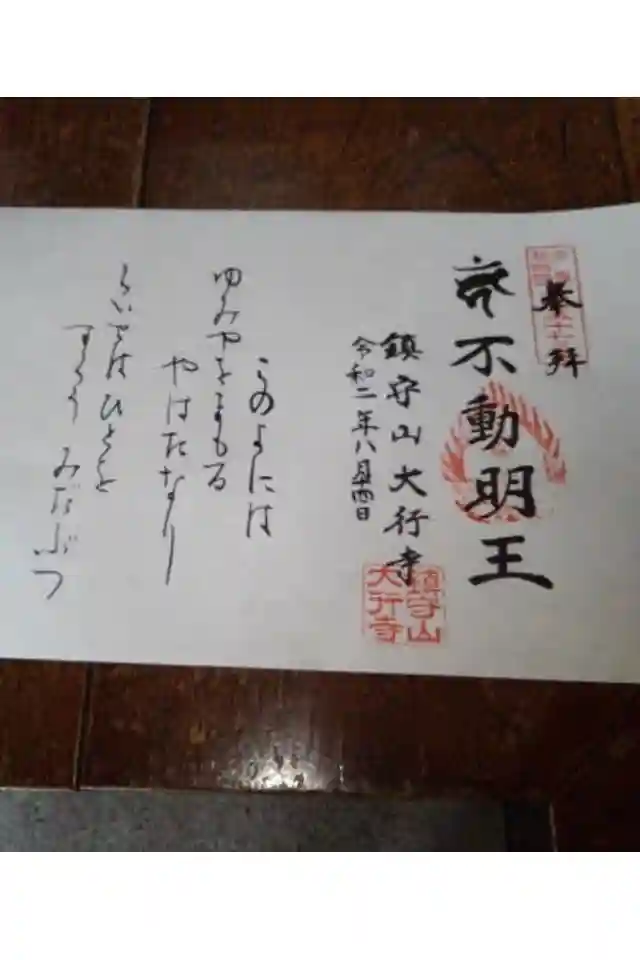 奉拝
不動明王
鎮守山大行寺
令和二年八月十四日
鎮守山
大行寺
このよには
ゆみやをまもる
やはたなり
らいせはひとを
すくう みだぶつ